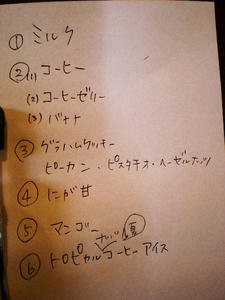 ① ミルク
② (1) コーヒー
(2) コーヒーゼリー
(3) バナナ
③ グラハムクッキー
ピーカン・ピスタチオ・ヘーゼルナッツ
④ にが甘
⑤ マンゴー
⑥ トロピカルコーヒーアイス